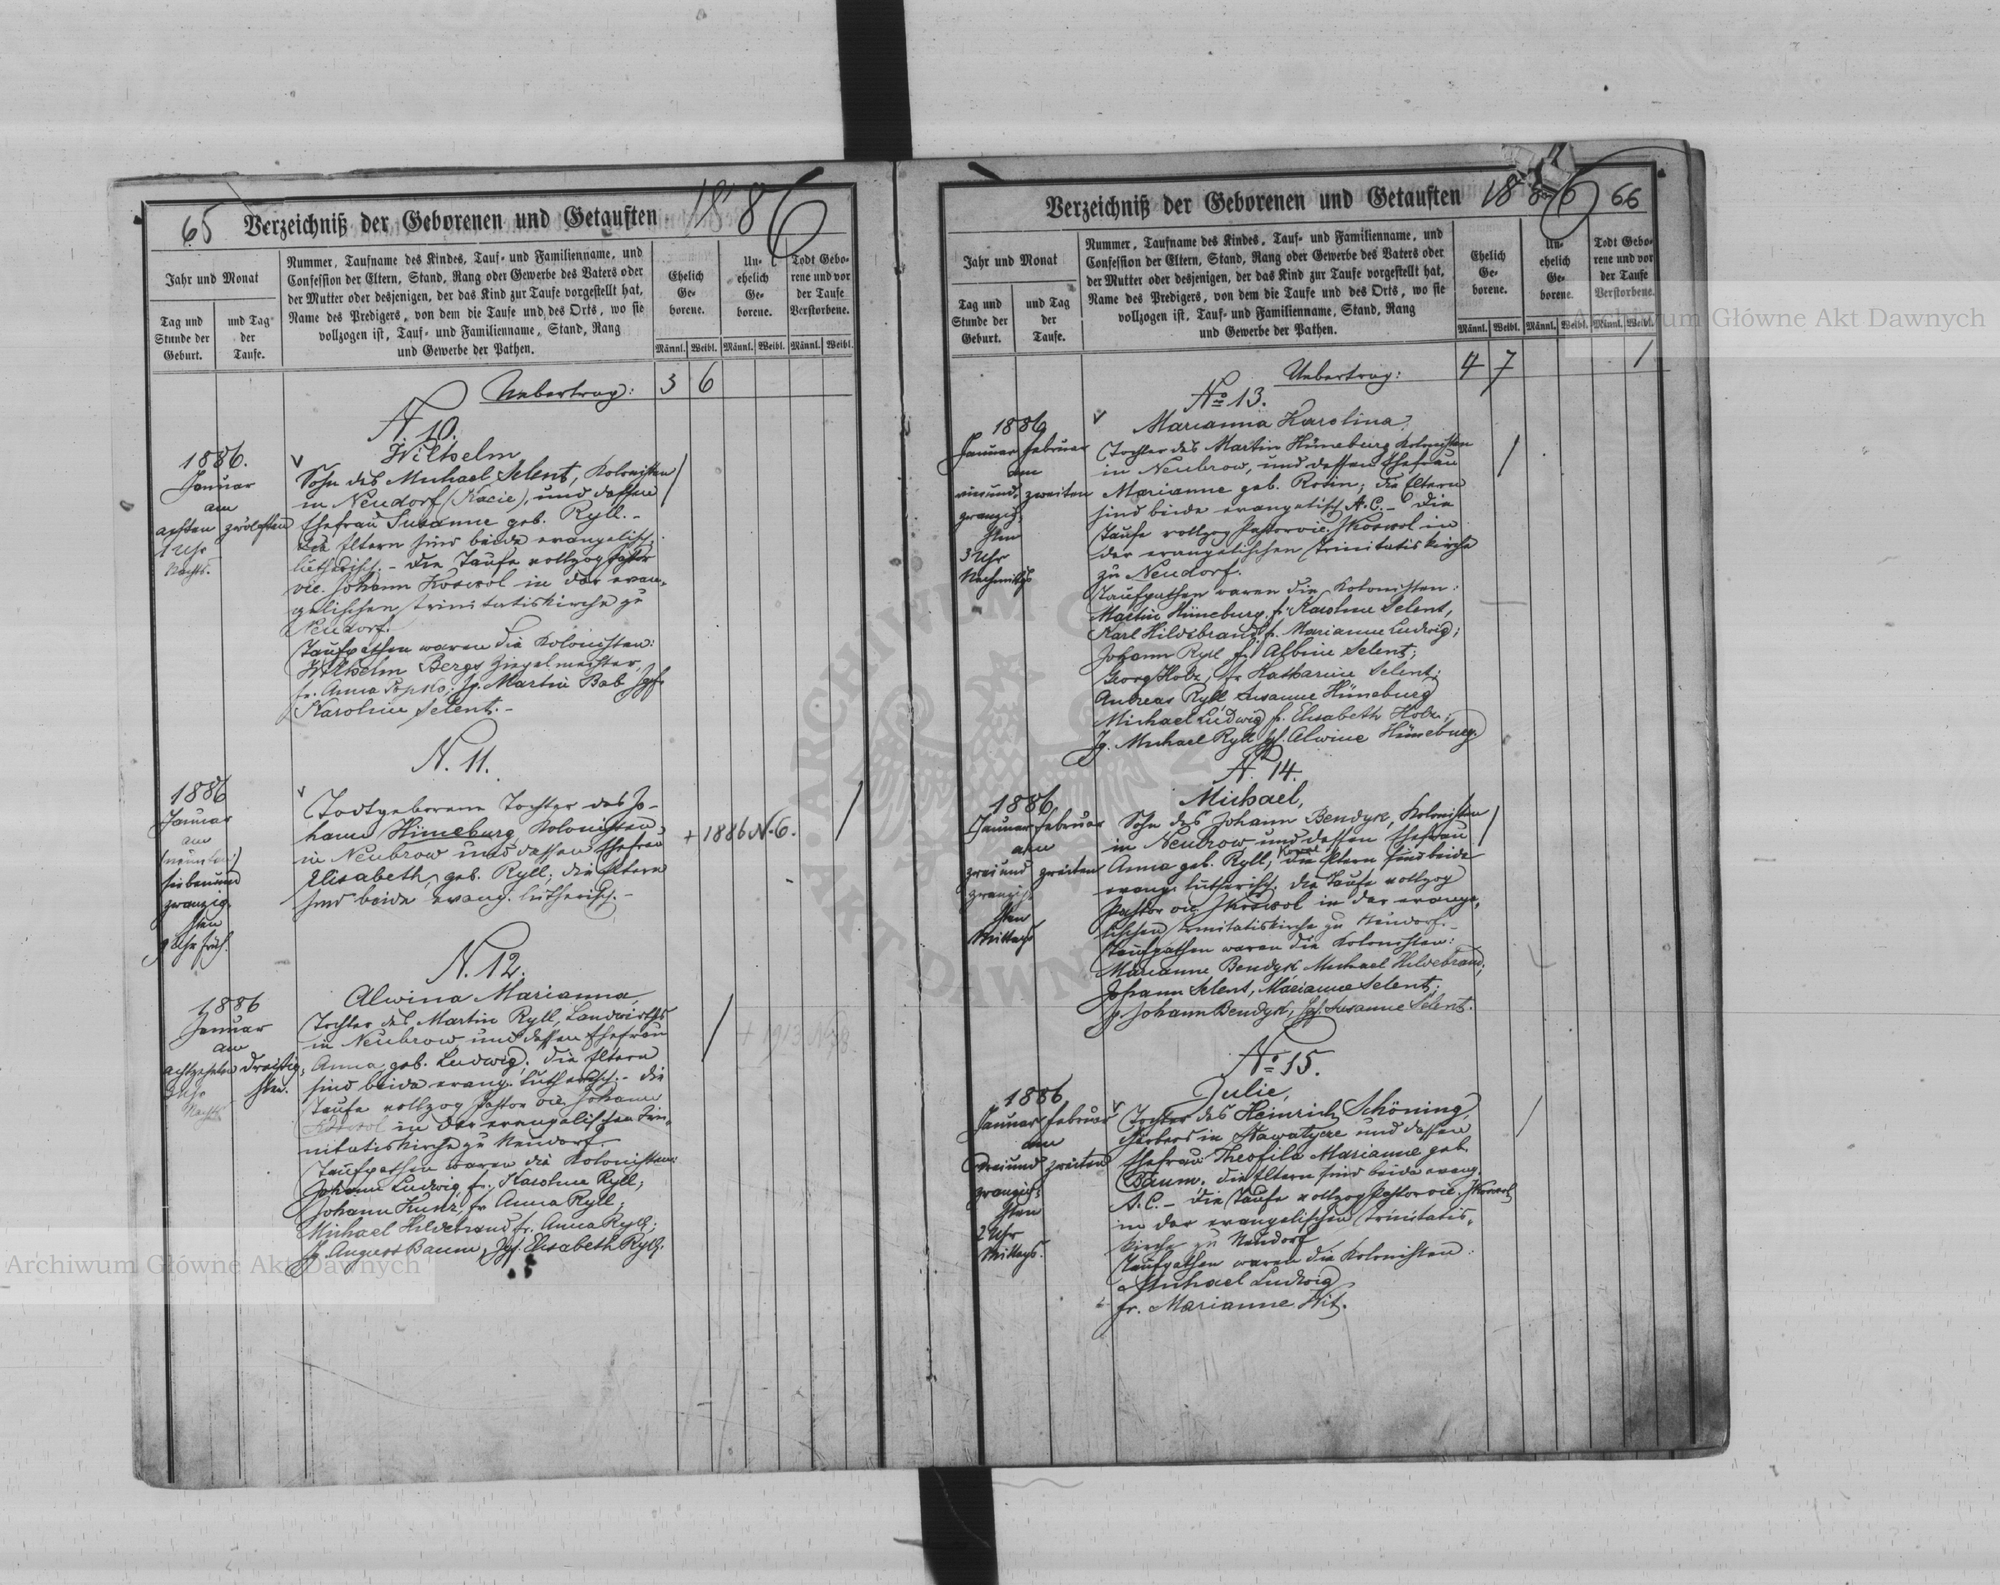 65 Verzeichniß der Geborenen und Getauften 1886
Jahr und Monat
Tag und Stunde der Geburt.
und Tag der Taufe.
Nummer, Taufname des Kindes, Tauf- und Familienname, und
Confession der Eltern, Stand, Rang oder Gewerbe des Vaters oder
der Mutter oder desjenigen, der das Kind zur Taufe vorgestellt hat,
Name des Predigers, von dem die Taufe und des Orts, wo sie
vollzogen ist, Tauf- und Familienname, Stand, Rang
und Gewerbe der Pathen.
Ehelich Geborene.
Unehelich Geborene.
Todt Geborene und vor der Taufe Verstorbene.
Männl. Weibl. Männl. Weibl. Männl. Weibl.
Uebertrag: 3 6
N 10.
Wilhelm
1886.
Januar
am
achten zwölften
1 Uhr
Nachts.
Sohn des Michael Selent, Kolonisten
in Neudorf (Kacie), und dessen
Ehefrau Susanne geb. Ryll. -
Die Eltern sind beide evangelisch-
lutherisch. - Die Taufe vollzog Pastor
vic. Johann Koswol in der evan-
gelischen Trinitatiskirche zu
Neudorf.
Taufpathen waren die Kolonisten:
Wilhelm Berg, Ziegelmeister,
fr. Anna Popko; Jg. Martin Bab Jgf.
Karoline Selent. -
N. 11.
1886
Januar
am
siebenund
zwanzig-
sten
9 Uhr früh.
Todtgeborene Tochter des Jo-
hann Hüneburg Kolonisten
in Neubrow und dessen Ehefrau
Elisabeth, geb. Ryll; die Eltern
sind beide evang. lutherisch. -
+ 1886 N. 6.
N. 12.
Alwina Marianna,
1886
Januar
am
achtzehnten dreißig-
sten.
Uhr
Nachts
Tochter des Martin Ryll, Landwirths
in Neubrow und dessen Ehefrau
Anna geb. Ludwig; die Eltern
sind beide evang. lutherisch. - Die
Taufe vollzog Pastor vic. Johann
Koswol in der evangelischen Tri-
nitatiskirche zu Neudorf.
Taufpathen waren die Kolonisten:
Johann Ludwig fr. Karoline Ryll;
Johann Kunz, fr. Anna Ryll;
Michael Hildebrand fr. Anna Ryll;
Jg. August Baum, Jgf. Elisabeth Ryll.
+ 1913
Verzeichniß der Geborenen und Getauften 1886 66
Jahr und Monat
Tag und Stunde der Geburt.
und Tag der Taufe.
Nummer, Taufname des Kindes, Tauf- und Familienname, und
Confession der Eltern, Stand, Rang oder Gewerbe des Vaters oder
der Mutter oder desjenigen, der das Kind zur Taufe vorgestellt hat,
Name des Predigers, von dem die Taufe und des Orts, wo sie
vollzogen ist, Tauf- und Familienname, Stand, Rang
und Gewerbe der Pathen.
Ehelich Geborene.
Unehelich Geborene.
Todt Geborene und vor der Taufe Verstorbene.
Männl. Weibl. Männl. Weibl. Männl. Weibl.
Uebertrag: 4 7 1
No 13.
Marianna Karolina,
1886
Januar Februar
am
einund- zweiten
zwanzig-
sten
3 Uhr
Nachmittgs
Tochter des Martin Hüneburg Kolonisten
in Neubrow, und dessen Ehefrau
Marianne geb. Rosin; die Eltern
sind beide evangelisch A.C. - Die
Taufe vollzog Pastor vic. JKoswol in
der evangelischen Trinitatiskirche
zu Neudorf.
Taufpathen waren die Kolonisten:
Martin Hüneburg, fr. Karoline Selent,
Karl Hildebrand, fr. Marianne Ludwig;
Johann Ryll fr. Albine Selent;
Georg Holz, fr. Katharine Selent;
Andreas Ryll, Susanne Hüneburg
Michael Ludwig fr. Elisabeth Holz;
Jg. Michael Ryll Jgf. Alwine Hüneburg.
N. 14.
Michael,
1886
Januar Februar
am
zweiund zweiten
zwanzig-
sten
Mittags
Sohn des Johann Bendyk, Kolonisten
in Neubrow und dessen Ehefrau
Anna geb. Ryll, die Eltern sind beide
evang. lutherisch. Die Taufe vollzog
Pastor vic. JKoswol in der evange-
lischen Trinitatiskirche zu Neudorf. -
Taufpathen waren die Kolonisten:
Marianne Bendyk Michael Hildebrand;
Johann Selent, Marianne Selent;
Jg. Johann Bendyk, Jgf. Susanne Selent.
No 15.
Julie,
1886
Januar Februar
am
dreiund zweiten
zwanzig-
sten
2 Uhr
Mittags.
Tochter des Heinrich Schöning,
Färbers in Sławatycze und dessen
Ehefrau Theofila Marianne geb.
Baum, die Eltern sind beide evang.
A.C. - Die Taufe vollzog Pastor vic. JKoswol
in der evangelischen Trinitatis-
kirche zu Neudorf
Taufpathen waren die Kolonisten:
Michael Ludwig
fr. Marianne Hit.
Archiwum Główne Akt Dawnych
Archiwum Główne Akt Dawnych